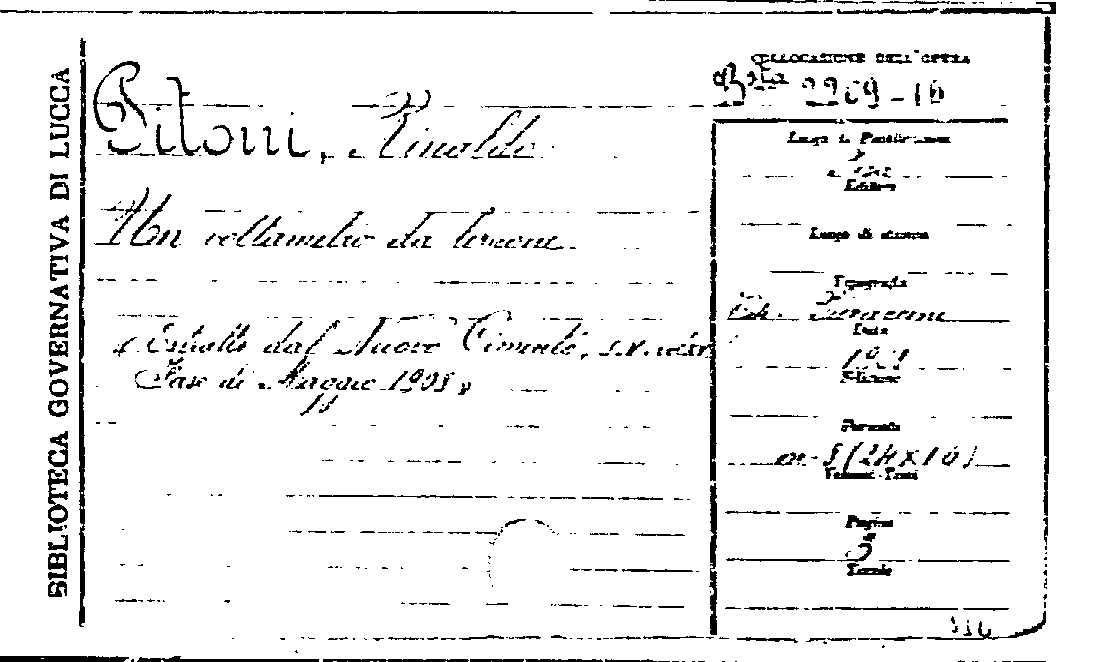 BIBLIOTECA GOVERNATIVA DI LUCCA
COLLOCAZIONE DELL'OPERA
Bta 2269-10
Pitoni, Rinaldo
Un voltametro da lezione.
« Estratto dal Nuovo Cimento, s.V.
Fasc di Maggio 1908 »
Luogo di Pubblicazione
Editore
Luogo di stampa
Tipografia
Data
Edizione
Formato
m-8 (24x16)
Volumi-Tomi
Pagine